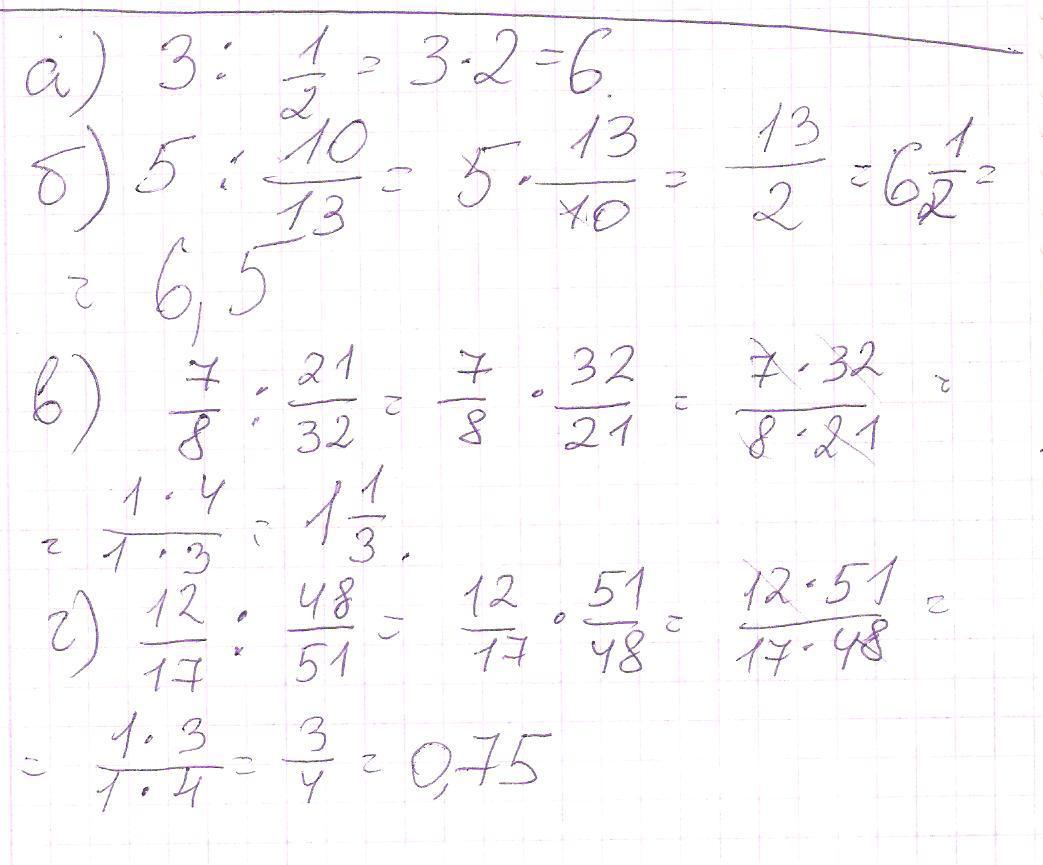 а) 3 : 1/2 = 3 · 2 = 6
б) 5 : 10/13 = 5 · 13/10 = 13/2 = 6 1/2 =
= 6,5
в) 7/8 : 21/32 = 7/8 · 32/21 = 7 · 32/8 · 21 =
= 1 · 4/1 · 3 = 1 1/3.
г) 12/17 : 48/51 = 12/17 · 51/48 = 12 · 51/17 · 48 =
= 1 · 3/1 · 4 = 3/4 = 0,75